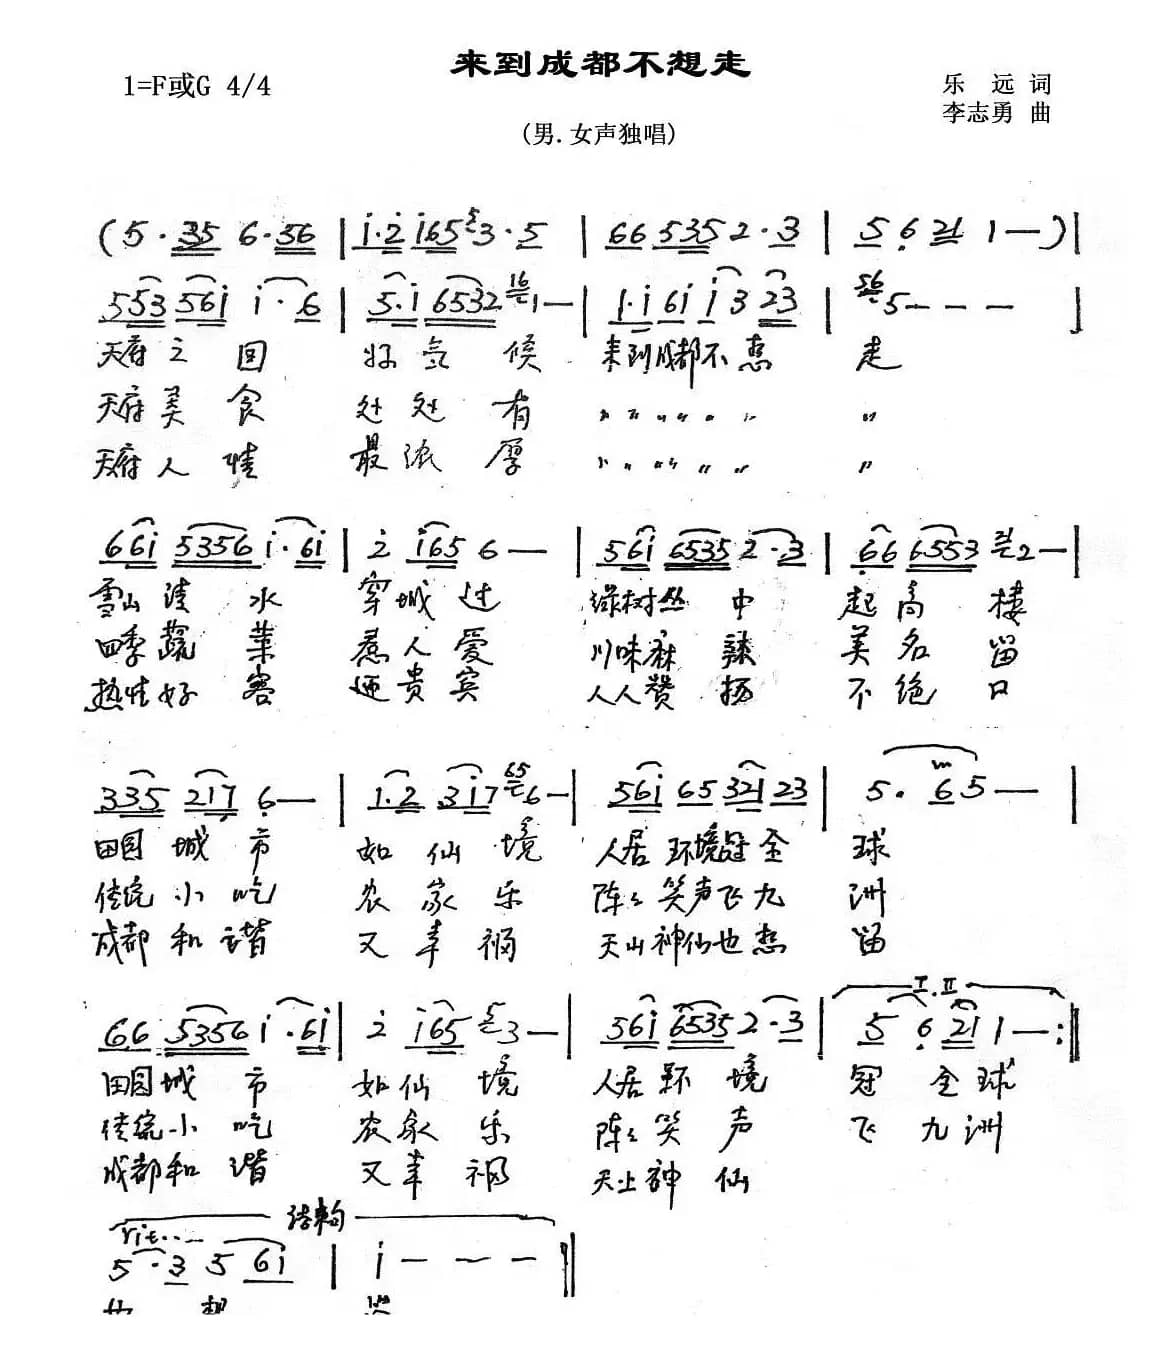 来到成都不想走
1=F或G 4/4
乐 远 词
李志勇 曲
(男.女声独唱)
(5·35 6·56 | i·2 i65 3·5 | 66 535 2·3 | 5 6 21 1—)|
553 56i i·6 | 5·i 6532 1— | 1·i 6i i3 23 | 5———]
天府之国 好气候 来到成都不想 走
天府美食 处处有 〃〃〃〃〃〃 〃
天府人情 最浓厚 〃〃〃〃〃〃 〃
66i 5356 i·6i | 2 i65 6— | 56i 6535 2·3 | 66 6553 2—|
雪山 水 穿城过 绿树丛中 起高楼
四季蔬菜 惹人爱 川味麻辣 美名留
热情好客 迎贵宾 人人赞扬 不绝口
335 217 6— | 1·2 3i7 6— | 56i 65 321 23 | 5·65— |
田园城市 如仙境 人居环境冠全 球
传统小吃 农家乐 陈々笑声飞九 洲
成都和谐 又幸福 天山神仙也想 留
I.II
66 5356 i·6i | 2 i65 3— | 56i 6535 2·3 | 5 6 21 1—:‖
田园城市 如仙境 人居环境 冠全球
传统小吃 农家乐 陈々笑声 飞九洲
成都和谐 又幸福 天上神仙
结束句
rit...
5·3 5 6i | i — — — ‖